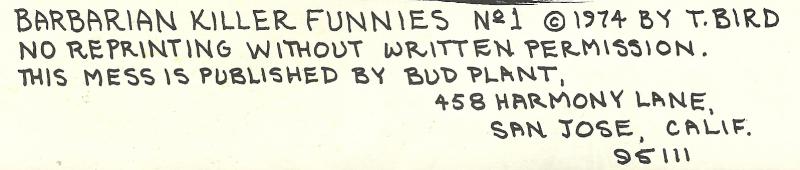 BARBARIAN KILLER FUNNIES Nº1 © 1974 BY T. BIRD
NO REPRINTING WITHOUT WRITTEN PERMISSION.
THIS MESS IS PUBLISHED BY BUD PLANT,
458 HARMONY LANE,
SAN JOSE, CALIF.
95111